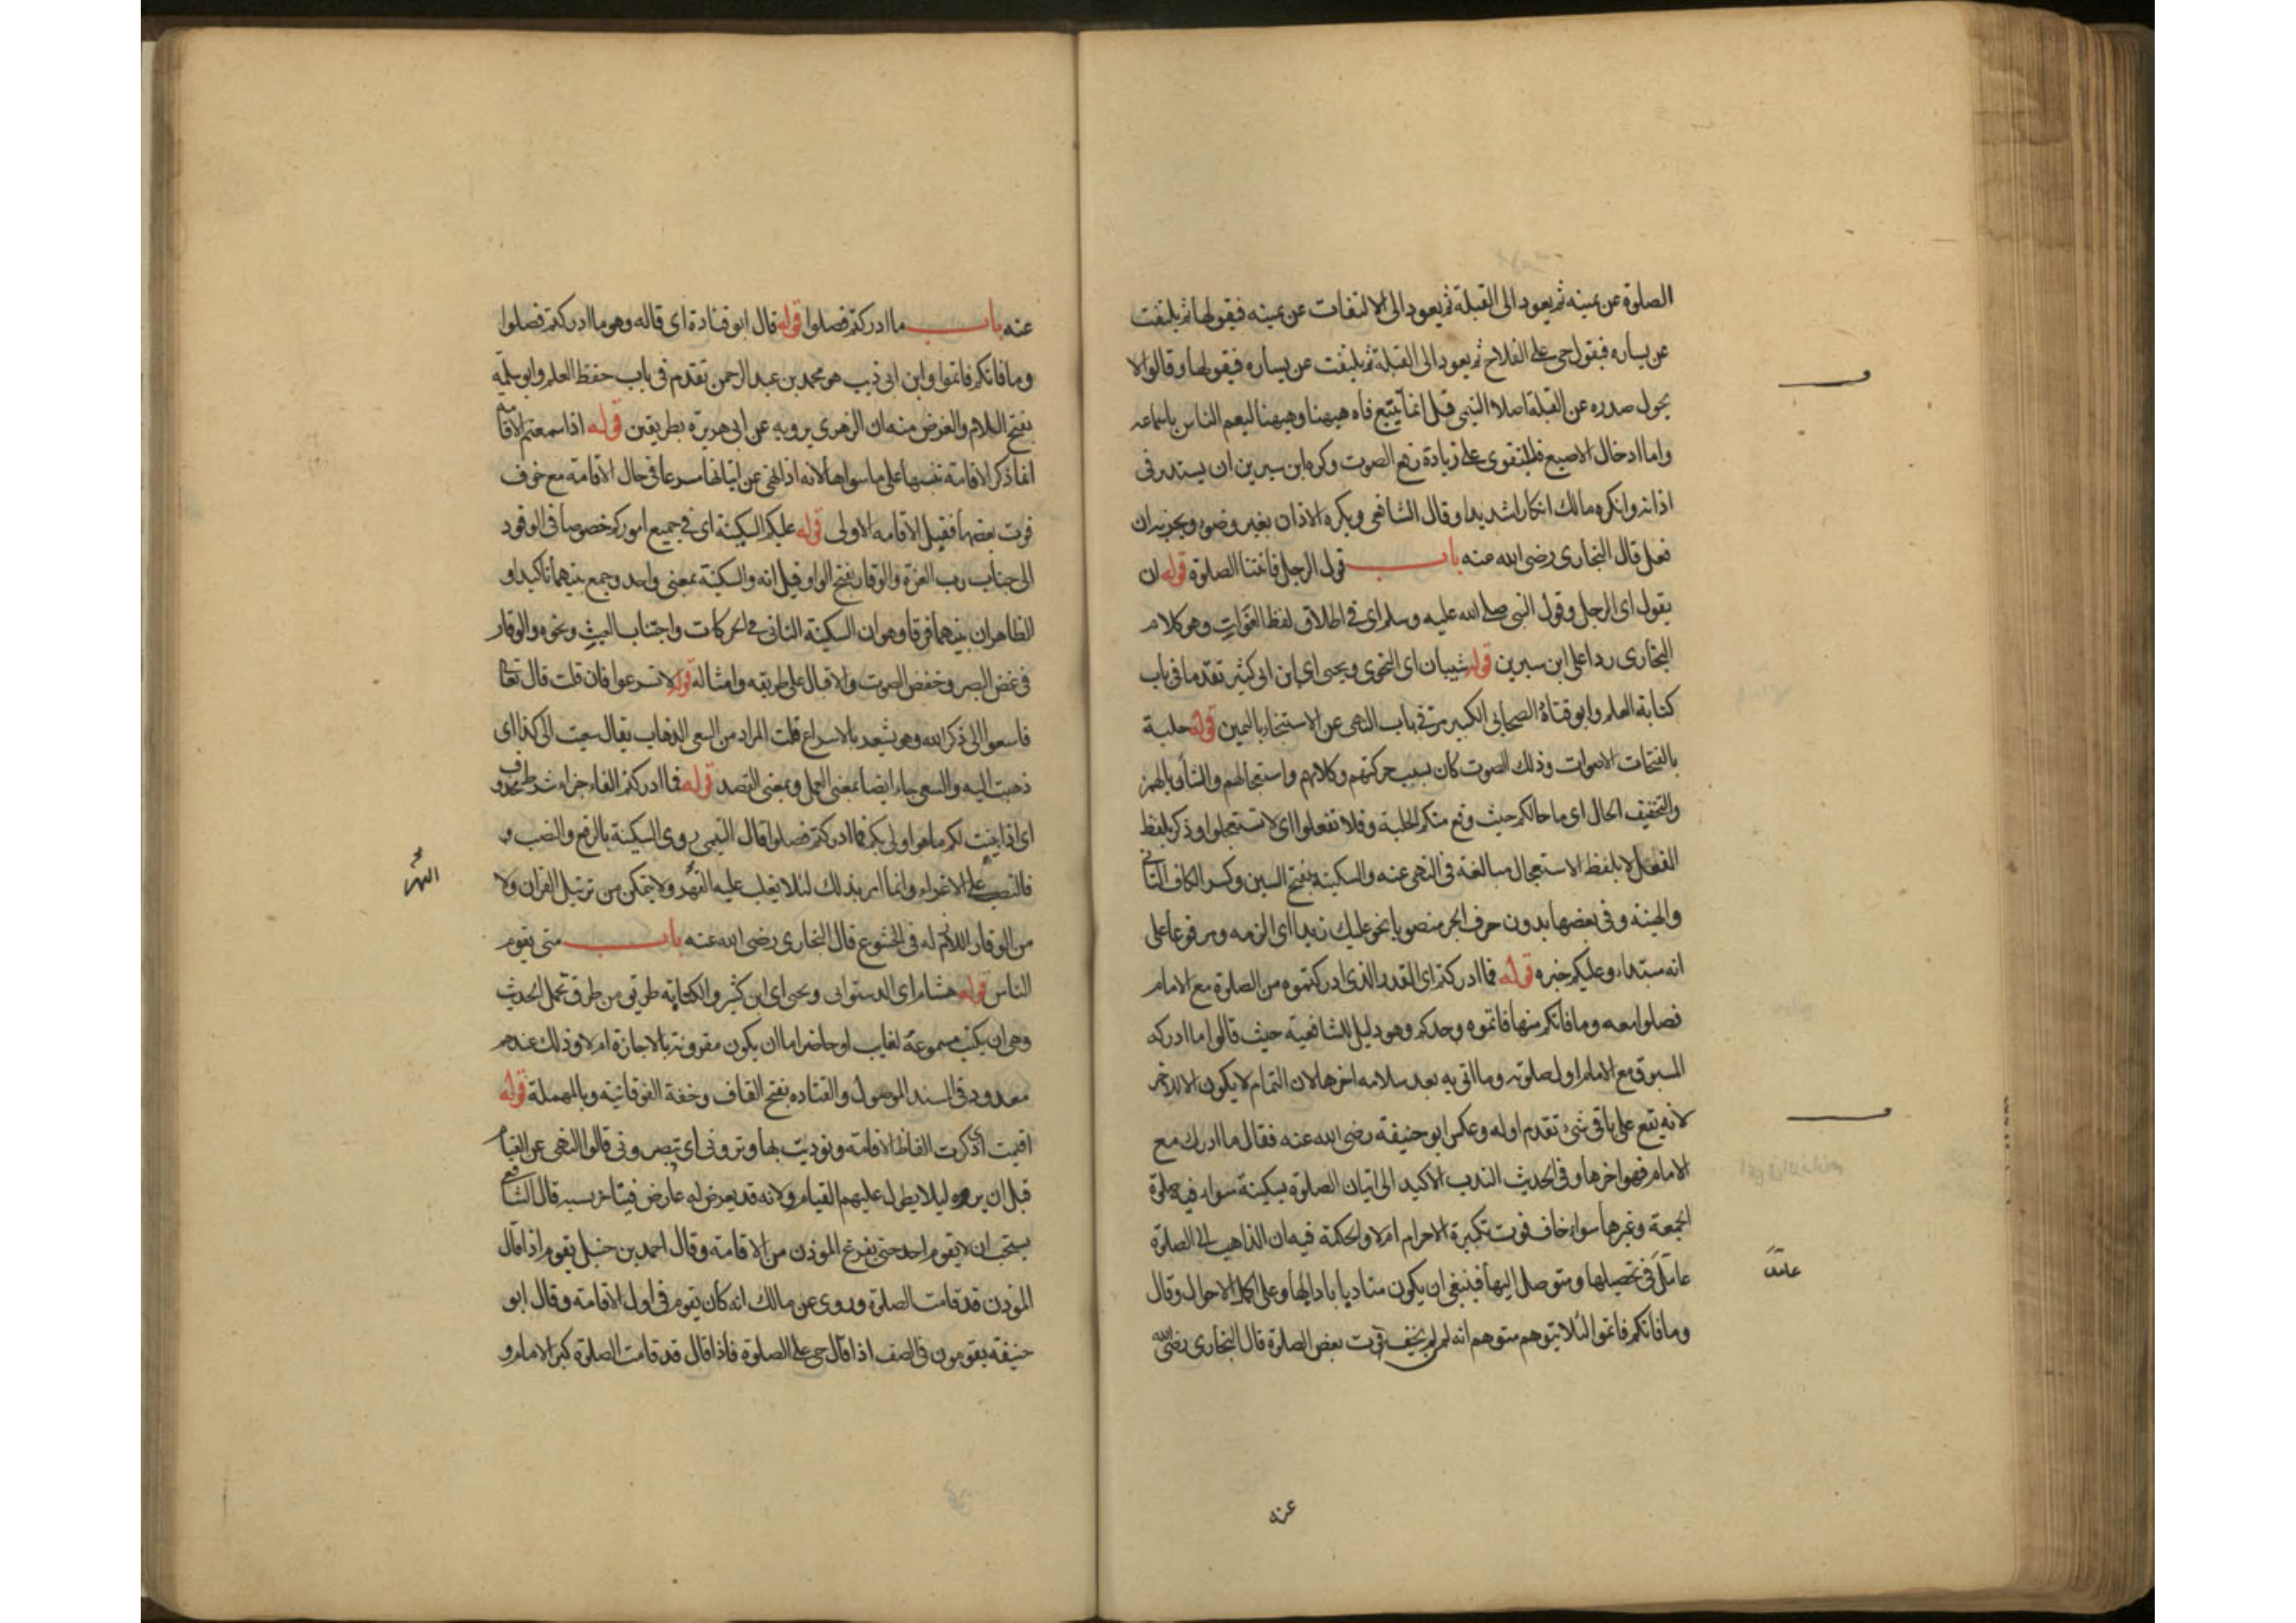 الصلوة عن يمينه ثم يعود الى القبلة ثم يعود الى الالتفات عن يمينه فيقولها ثم يلتفت
عن يساره فيقول حى على الفلاح ثم يعود الى القبلة ثم يلتفت عن يساره فيقولها وقالوا لا
يحول صدره عن القبلة اصلا التيمى قيل انما يتتبع فاه ههنا وههنا ليعم الناس باسماعه
واما ادخال الاصبع فللتقوى على زيادة رفع الصوت وكره ابن سيرين ان يستدير فى
اذانه وانكره مالك انكارا شديدا وقال الشافعى ويكره الاذان بغير وضوء ويجزيه ان
فعل قال البخارى رضى الله عنه باب قول الرجل فاتتنا الصلوة قوله ان
يقول اى الرجل وقول النبى صلى الله عليه وسلم اى فى اطلاق لفظ الفوات وهو كلام
البخارى ردا على ابن سيرين قوله شيبان اى النحوى ويحيى اى ابن ابى كثير تقدما فى باب
كتابة العلم وابو قتادة الصحابى الكبير مر فى باب النهى عن الاستنجاء باليمين قوله جلبة
بالفتحات الاصوات وذلك الصوت كان بسبب حركتهم وكلامهم واستعجالهم والشأو بالهمز
والتخفيف الحال اى ما حالكم حيث وقع منكم الجلبة وفلا تفعلوا اى لا تستعجلوا وذكر بلفظ
الفعل لا بلفظ الاستعجال مبالغة فى النهى عنه والسكينة بفتح السين وكسر الكاف التأنى
والهينة وفى بعضها بدون حرف الجر منصوبا نحو عليك زيدا اى الزمه ومرفوعا على
انه مبتداء وعليكم خبره قوله فما ادركتم اى القدر الذى ادركتموه من الصلوة مع الامام
فصلوا معه وما فاتكم منها فاتموه وحدكم وهو دليل للشافعية حيث قالوا ما ادركه
المسبوق مع الامام اول صلوته وما اتى به بعد سلامه اخرها لان التمام لا يكون الا للاخر
لانه يقع على باقى شىء تقدم اوله وعكس ابو حنيفة رضى الله عنه فقال ما ادرك مع
الامام فهو اخرها وفى الحديث الندب الاكيد الى اتيان الصلوة بسكينة سواء فيه صلوة
الجمعة وغيرها سواء خاف فوت تكبيرة الاحرام ام لا والحكمة فيه ان الذاهب الى الصلوة
عامل فى تحصيلها ومتوصل اليها فينبغى ان يكون متادبا بادابها وعلى اكمل الاحوال وقال
وما فاتكم فاتموا لئلا يتوهم متوهم انه لمن لم يخف فوت بعض الصلوة قال البخارى رضى الله
عنه
عنه باب ما ادركتم فصلوا قوله قال ابو قتادة اى قاله وهو ما ادركتم فصلوا
وما فاتكم فاتموا وابن ابى ذيب هو محمد بن عبد الرحمن تقدم فى باب حفظ العلم وابو سلمة
بفتح اللام والغرض منه ان الزهرى يرويه عن ابى هريرة بطريقين قوله اذا سمعتم الاقامة
انما ذكر الاقامة تنبيها على ما سواها لانه اذا نهى عن اتيانها مسرعا فى حال الاقامة مع خوف
فوت بعضها فقبل الاقامه الاولى قوله عليكم السكينة اى فى جميع اموركم خصوصا فى الوفود
الى جناب رب العزة والوقار بفتح الواو قيل انه والسكينة بمعنى واحد وجمع بينهما تاكيدا و
الظاهر ان بينهما فرقا وهو ان السكينة التانى فى الحركات واجتناب العبث ونحوه والوقار
فى غض البصر وخفض الصوت والاقبال على طريقه وامثاله قوله لا تسرعوا فان قلت قال تعالى
فاسعوا الى ذكر الله وهو يشعر بالاسراع قلت المراد من السعى الذهاب يقال سعيت الى كذا اى
ذهبت اليه والسعى جاء ايضا بمعنى العمل وبمعنى القصد قوله فما ادركتم الفاء جزاء شرط محذوف
اى اذا بينت لكم ما هو اولى بكم فما ادركتم فصلوا قال التيمى روى السكينة بالرفع والنصب و
فالنصب على الاغراء وانما امر بذلك لئلا يغلب عليه البهر ولا يتمكن من ترتيل القران ولا
البهر
من الوقار اللازم له فى الخشوع قال البخارى رضى الله عنه باب متى يقوم
الناس قوله هشام اى الدستوائى ويحيى اى ابن كثير والكتابة طريق من طرق تحمل الحديث
وهى ان يكتب مسموعة لغايب او حاضر اما ان يكون مقرونة بالاجازة ام لا وذلك عندهم
معدود فى المسند الموصول والقتاده بفتح القاف وخفة الفوقانية وبالمهملة قوله
اقيمت اى ذكرت الفاظ الاقامة ونوديت بها وترونى اى تبصرونى قالوا النهى عن القيام
قبل ان يروه ليلا يطول عليهم القيام ولانه قد يعرض له عارض فيتاخر بسببه قال الشافعى
يستحب ان لا يقوم احد حتى يفرغ الموذن من الاقامة وقال احمد بن حنبل يقوم اذا قال
الموذن قد قامت الصلوة وروى عن مالك انه كان يقوم فى اول الاقامة وقال ابو
حنيفة يقومون فى الصف اذا قال حى على الصلوة فاذا قال قد قامت الصلوة كبر الامام و